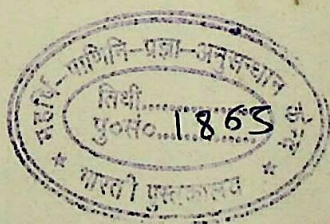 महर्षि-पाणिनि-प्रज्ञा-अनुसन्धान
तिथी..............
पु०सं०..1865
* भारती पुस्तकालय *